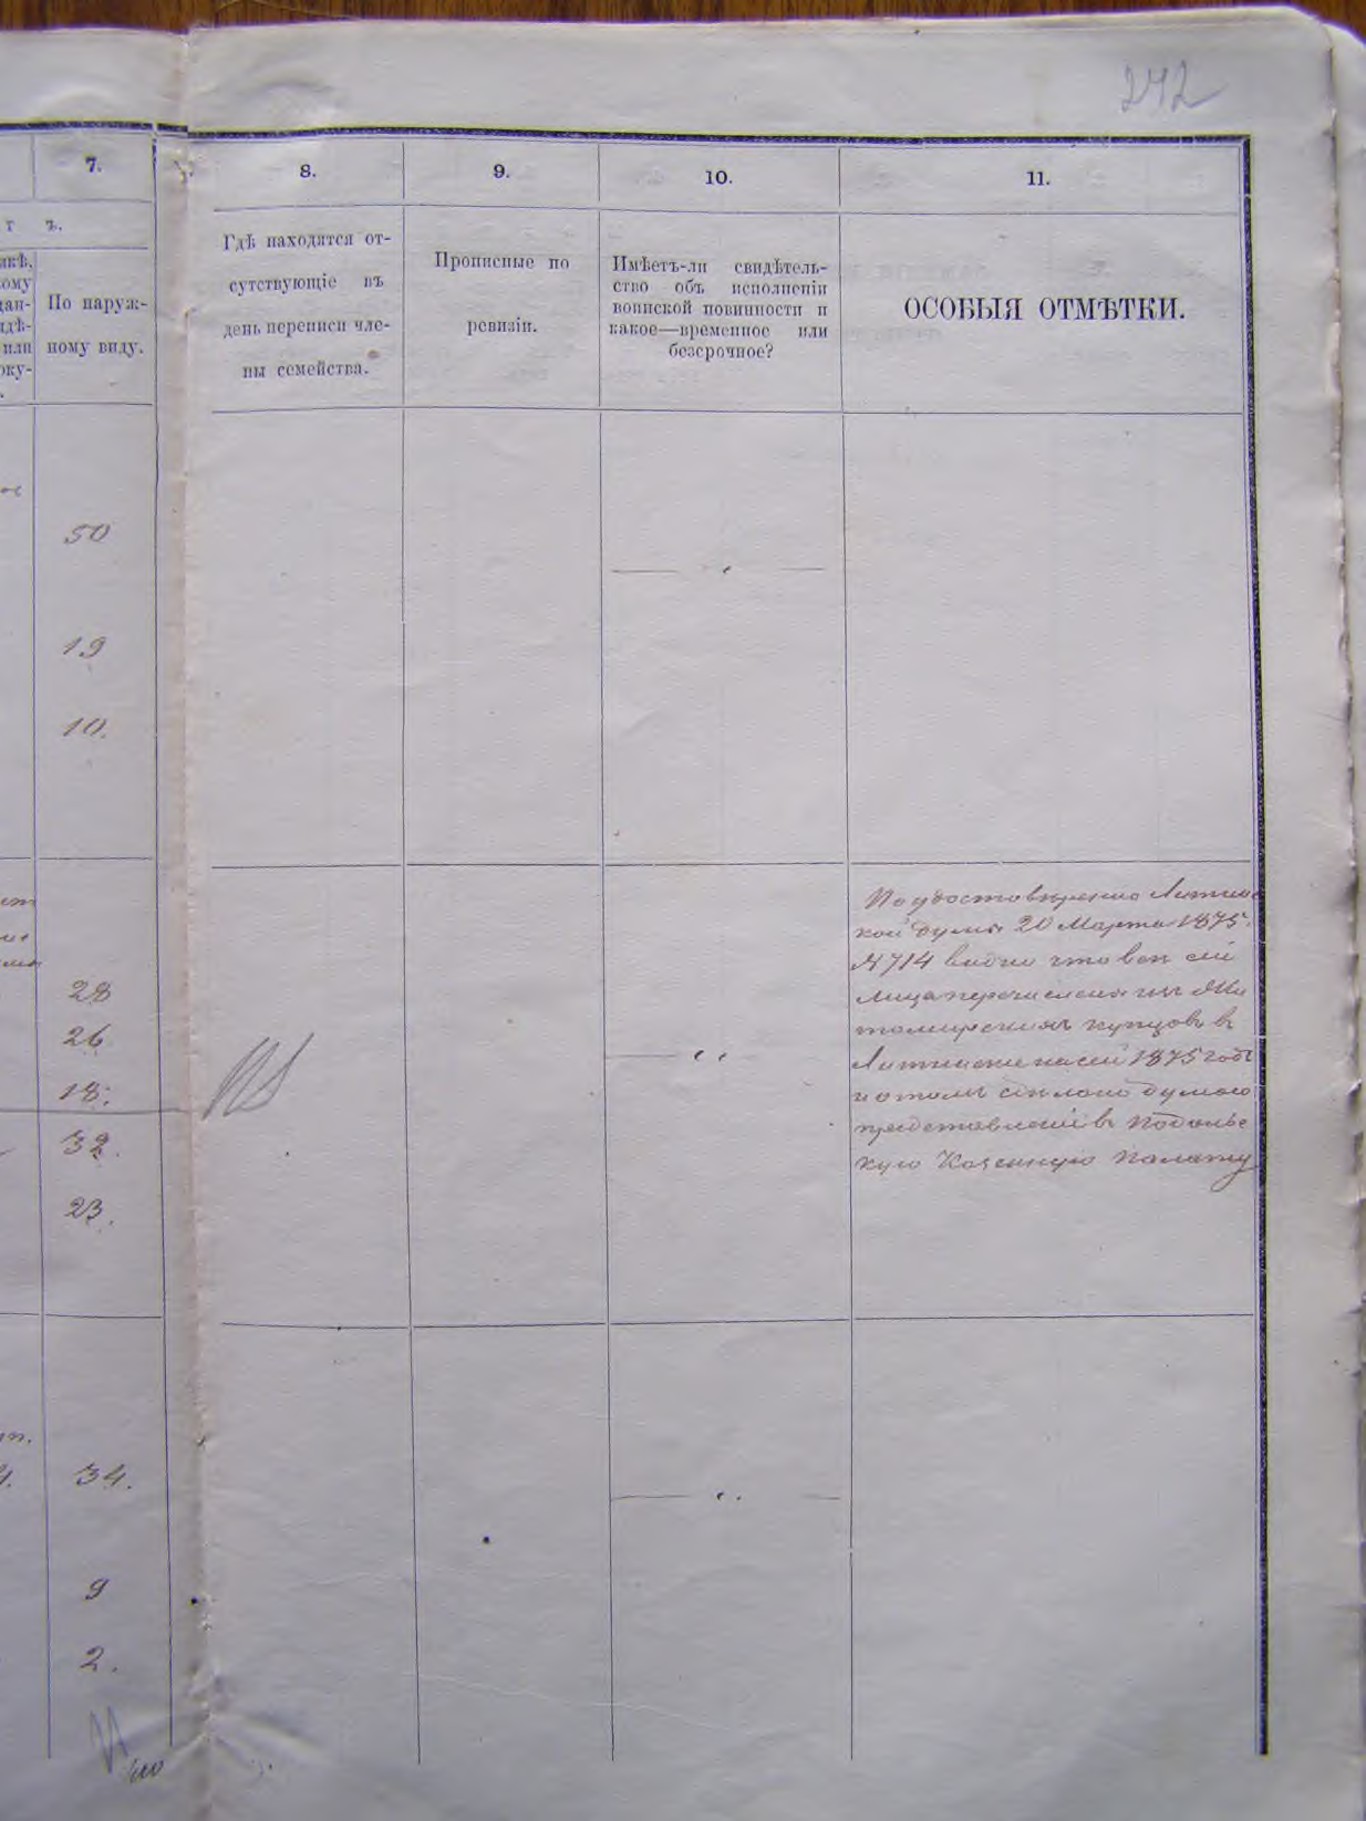 242
7.
8.
9.
10.
11.
т ъ.
По наруж-
ному виду.
Гдѣ находятся от-
сутствующіе въ
день переписи чле-
ны семейства.
Прописные по
ревизіи.
Имѣетъ-ли свидѣтель-
ство объ исполненіи
воинской повинности и
какое—временное или
безсрочное?
ОСОБЫЯ ОТМѢТКИ.
50
19
10.
28
26
18.
32.
23.
По удостовѣренію Литинс
кой думы 20 Марта 1875.
№ 714 видно что всѣ сіи
лица перечислены изъ Жи
томирскихъ купцовъ въ
Литинскіе на сей 1875 годъ
и о томъ сдѣлано думою
представленіе въ Подольс
кую Казенную Палату
34.
9
2.